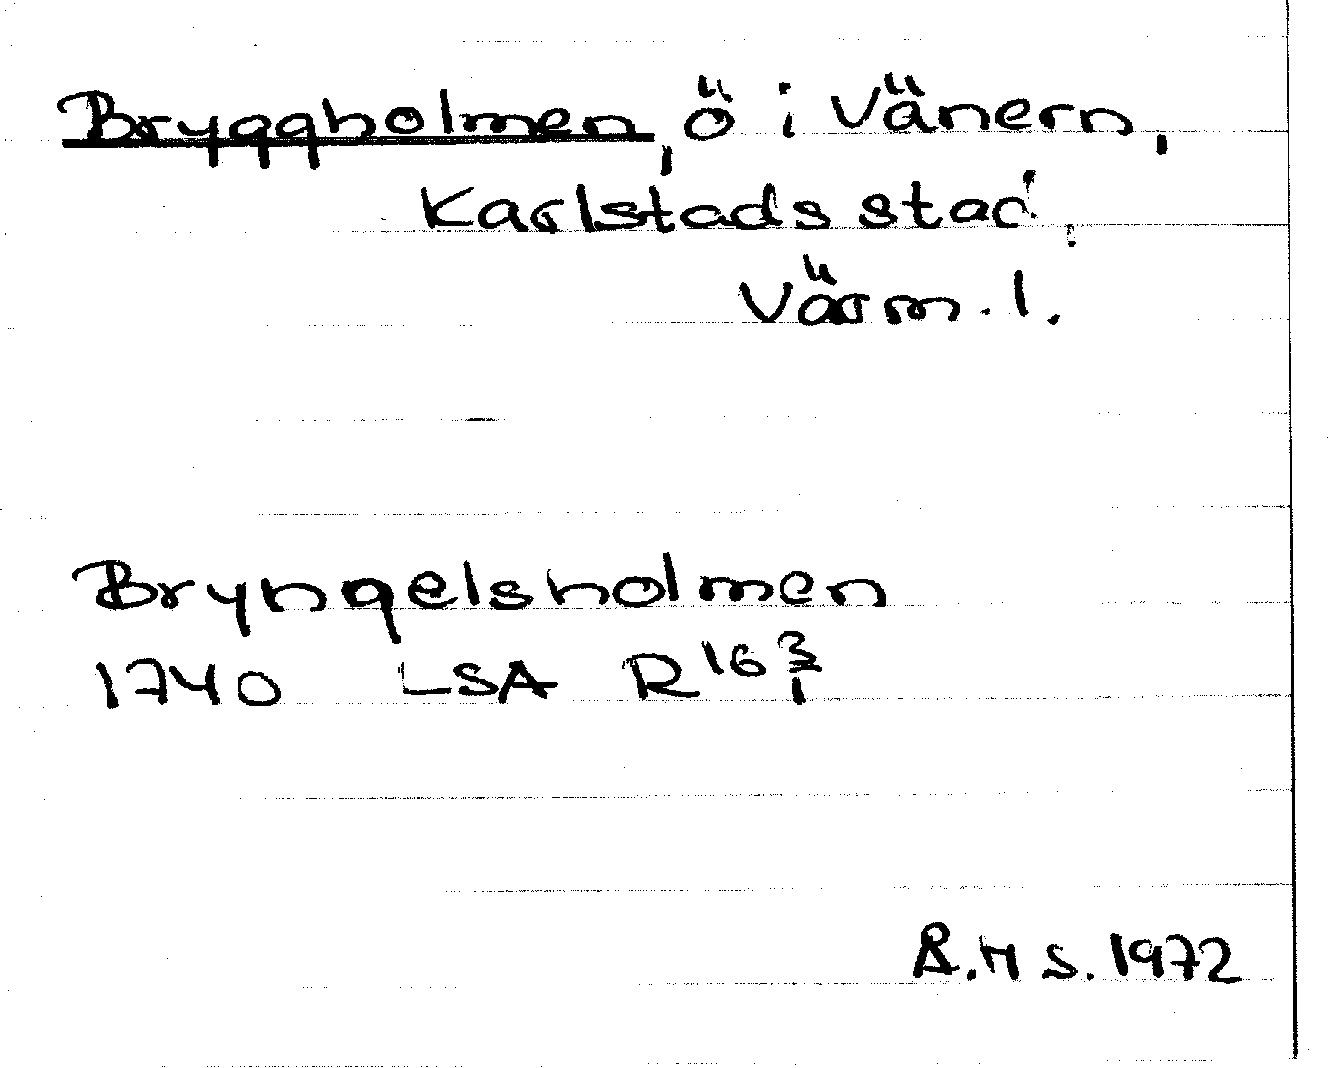 Bryggholmen, ö i Vänern,
Karlstads stad.
Värm. l.
Bryngelsholmen
1740 LSA R 16 3/1
Å.H S. 1972